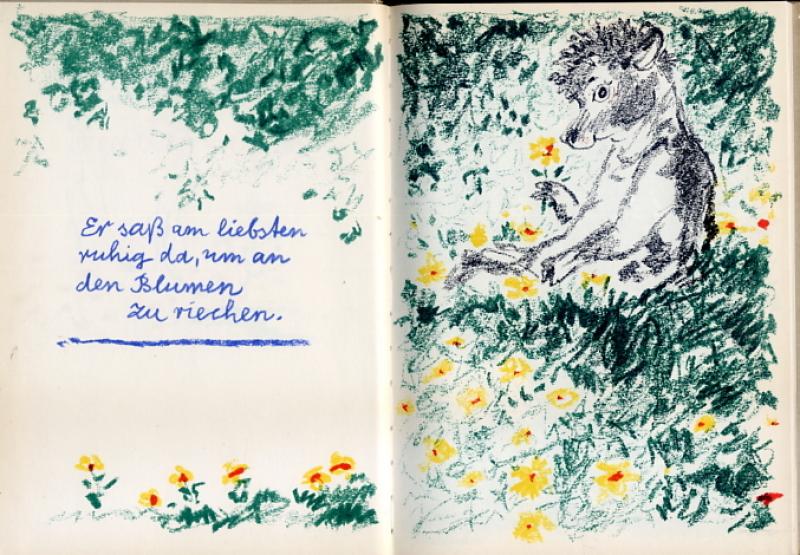 Er saß am liebsten
ruhig da, um an
den Blumen
zu riechen.